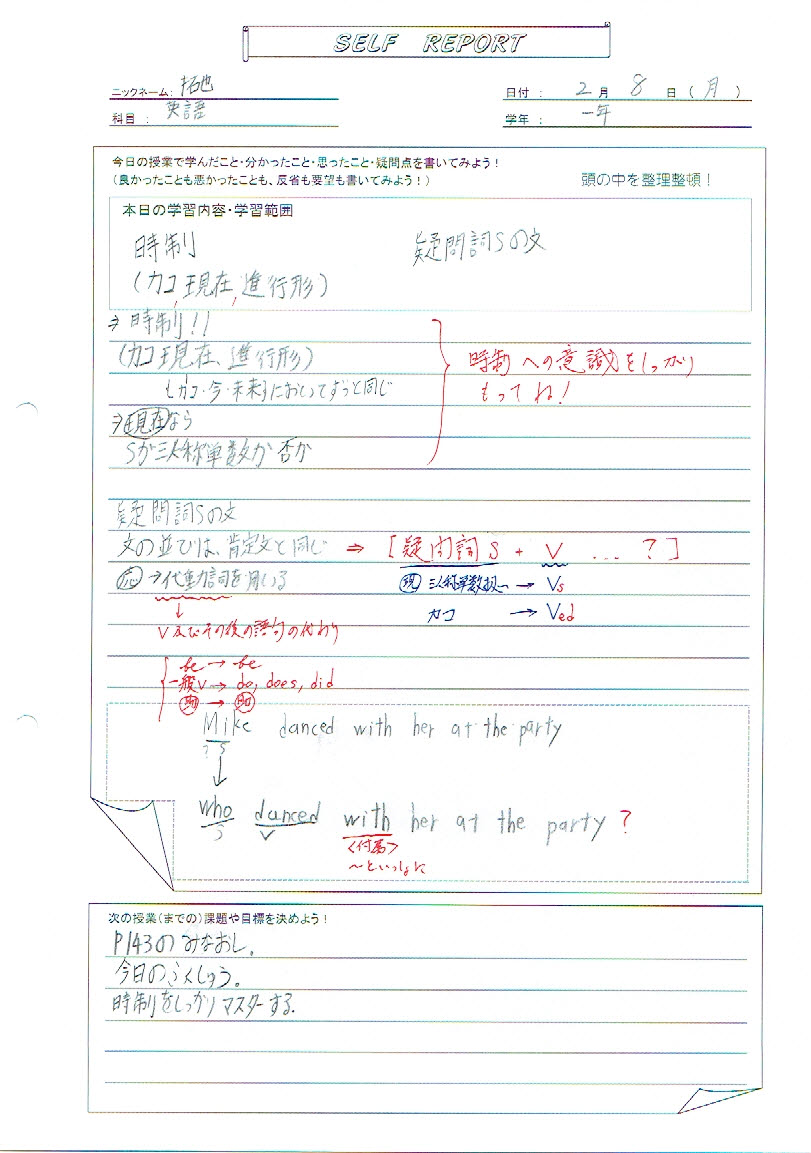 SELF REPORT
ニックネーム: 拓也
日付 : 2月 8日(月)
科目 : 英語
学年 : 一年
今日の授業で学んだこと・分かったこと・思ったこと・疑問点を書いてみよう!
(良かったことも悪かったことも、反省も要望も書いてみよう!)
頭の中を整理整頓!
本日の学習内容・学習範囲
時制
疑問詞Sの文
(カコ, 現在, 進行形)
⇒時制!!
(カコ 現在、進行形)
時制への意識をしっかり
もってね!
(カコ・今・未来)においてずっと同じ
⇒現在なら
Sが三人称単数か否か
疑問詞Sの文
文の並びは、肯定文と同じ ⇒ [疑問詞S + V ... ?]
応⇒代動詞を用いる
現 三人称単数扱い → Vs
カコ → Ved
↓
V及びその後の語句の代わり
be → be
一般V → do, does, did
助 → 助
Mike danced with her at the party
S
↓
who danced with her at the party ?
S V
<付属>
~といっしょに
次の授業(までの)課題や目標を決めよう!
P143のみなおし。
今日のふくしゅう。
時制をしっかりマスターする.